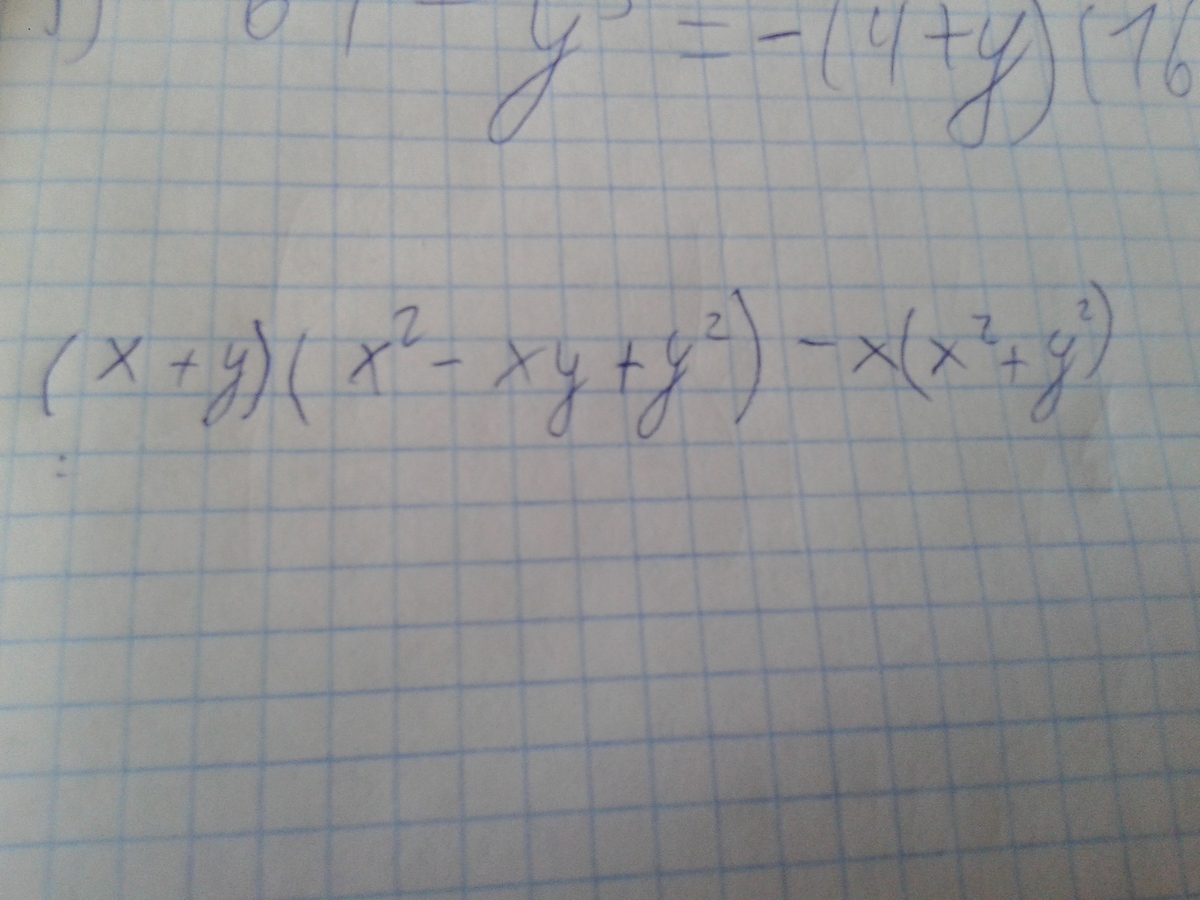 y³ = -(4+y)(16
(x+y)(x²-xy+y²)-x(x²+y²)
: